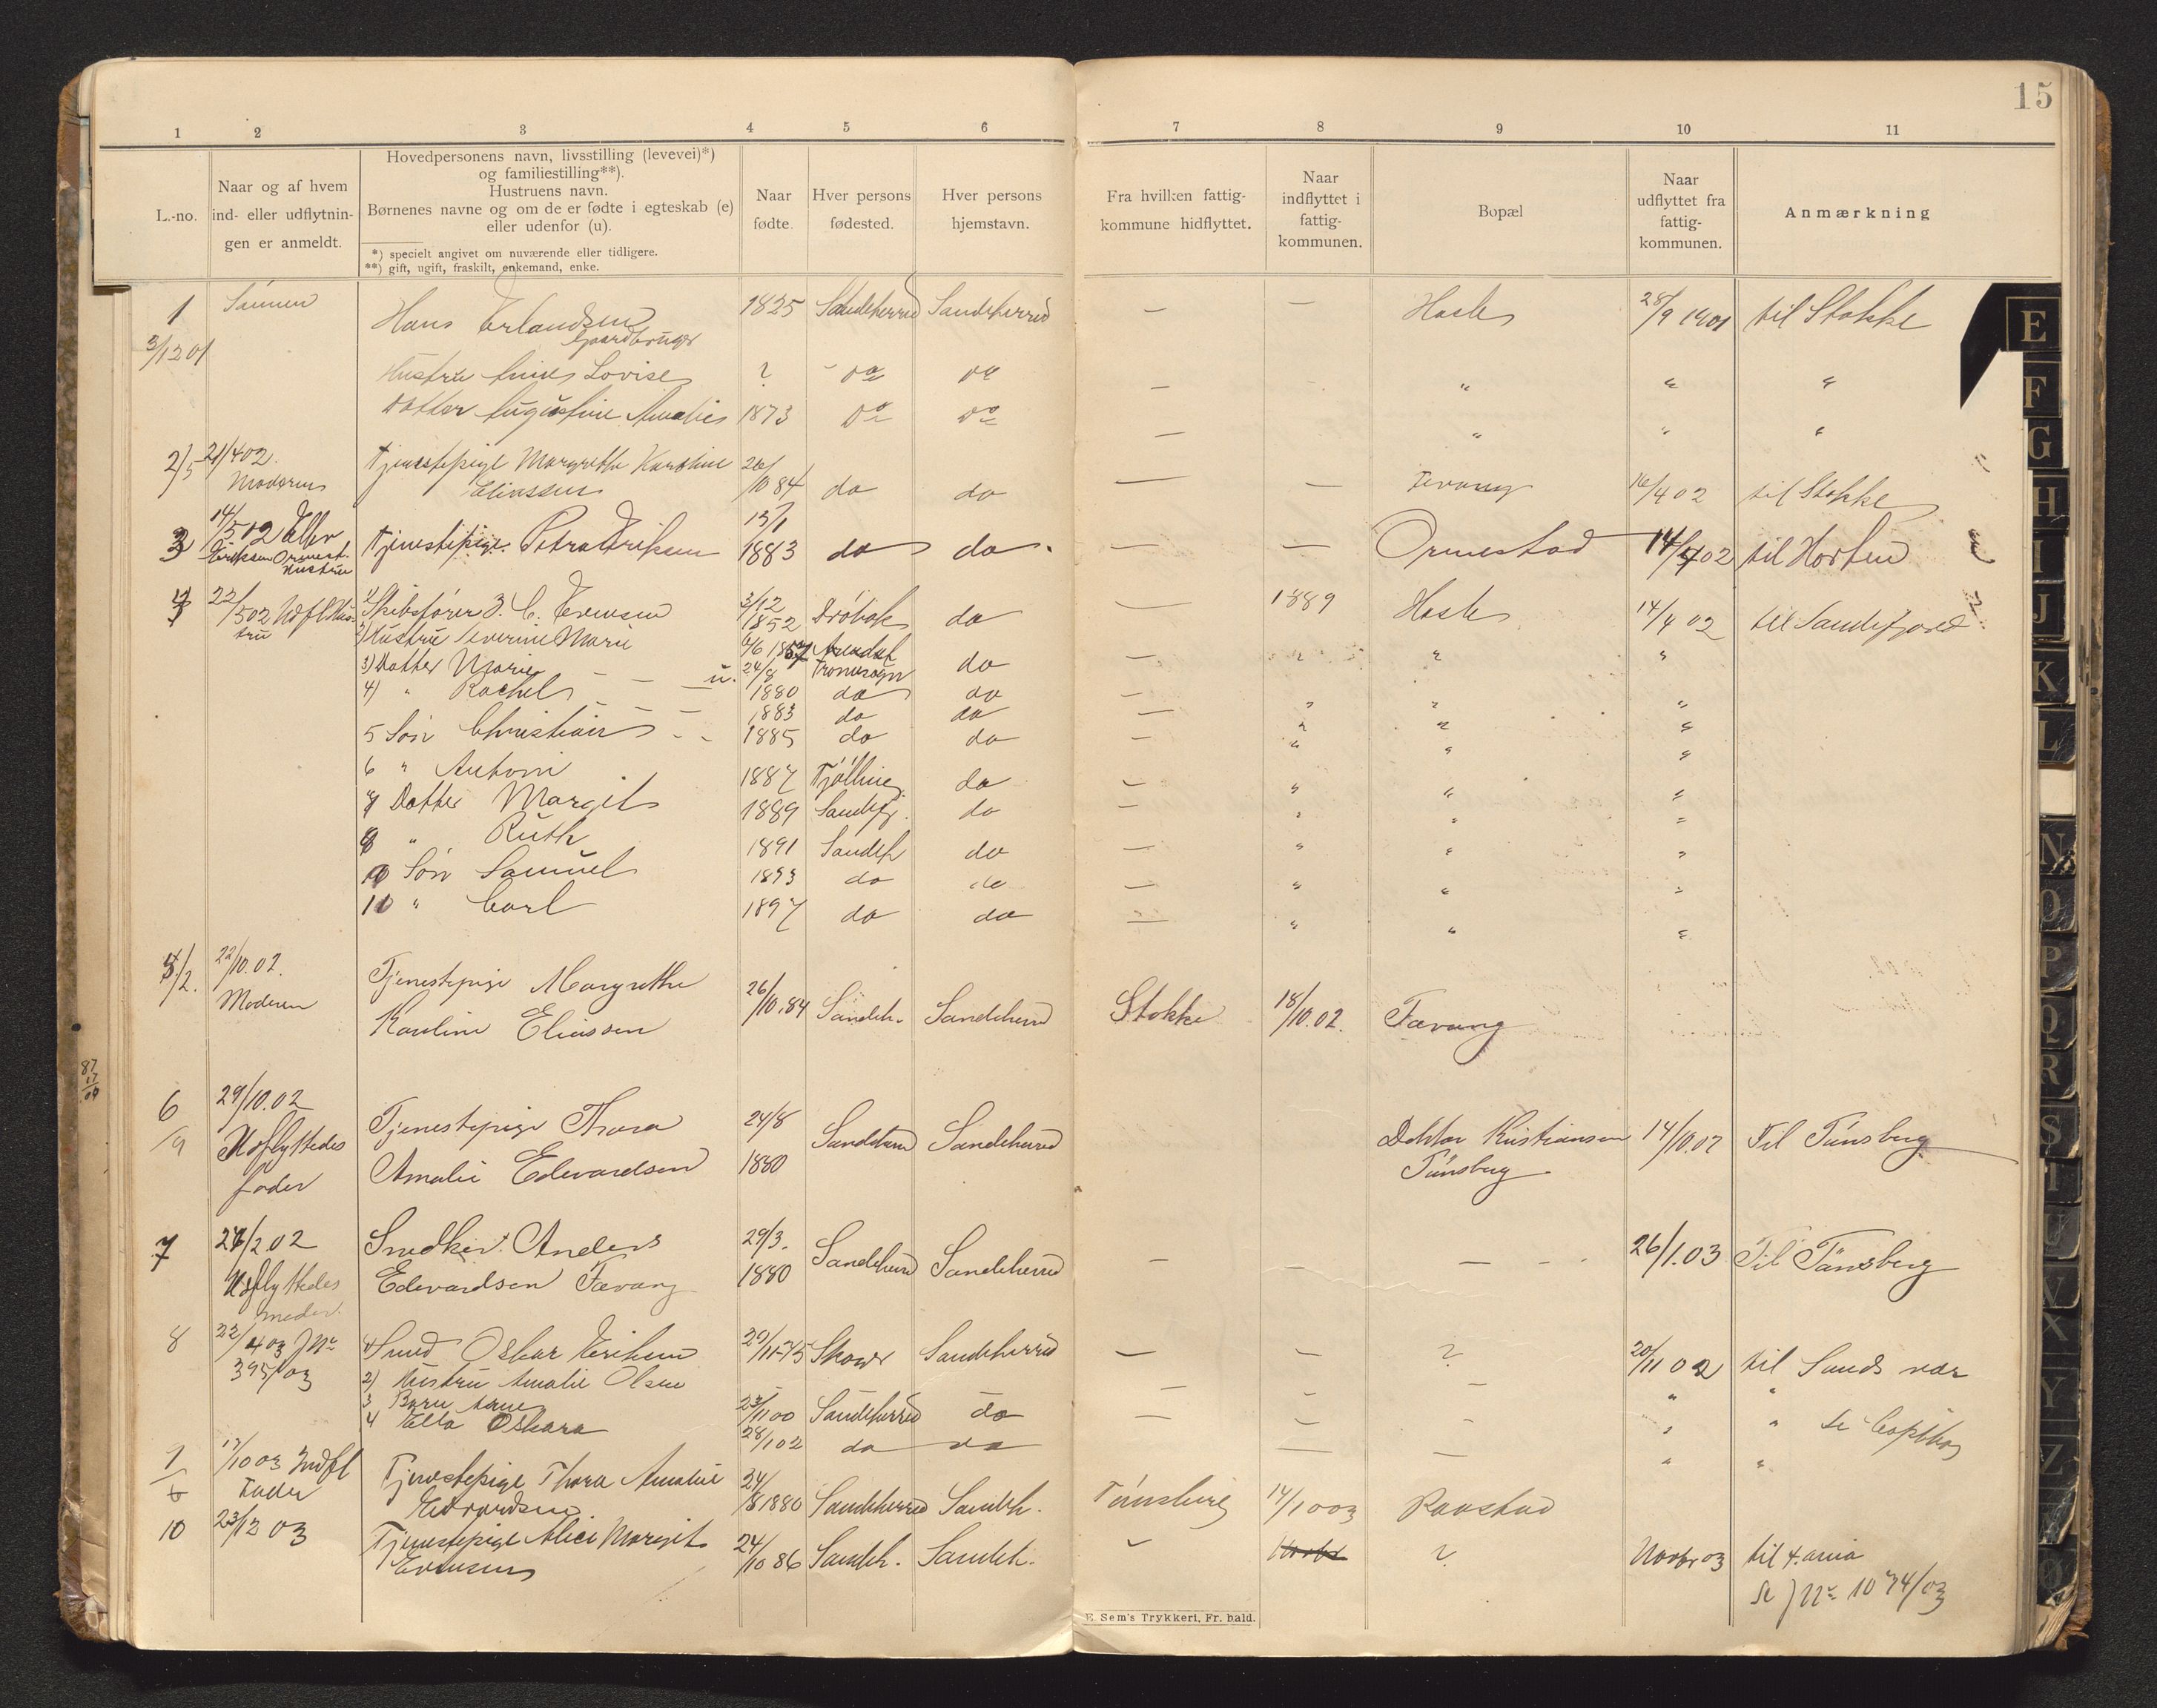 15
1 2 3 4 5 6 7 8 9 10 11
L.-no.
Naar og af hvem
ind- eller udflytnin-
gen er anmeldt.
Hovedpersonens navn, livsstilling (levevei)*)
og familiestilling**).
Hustruens navn.
Børnenes navne og om de er fødte i egteskab (e)
eller udenfor (u).
*) specielt angivet om nuværende eller tidligere.
**) gift, ugift, fraskilt, enkemand, enke.
Naar
fødte.
Hver persons
fødested.
Hver persons
hjemstavn.
Fra hvilken fattig-
kommune hidflyttet.
Naar
indflyttet i
fattig-
kommunen.
Bopæl
Naar
udflyttet fra
fattig-
kommunen.
Anmærkning
1 Sønnen Hans Erlandsen 1825 Sandeherred Sandeherred — — Hasle 28/9 1901 til Stokke
3/12 01 Gaardbruger
Hustru Lovise ? do do — " " "
Datter Augustine Amalie 1873 do do — " " "
2/5 21/4 02. Tjenestepige Margrethe Karoline 26/
Moderen Eliassen 10 84 do do — — Fevang 16/4 02 til Stokke
3 14/5 02 Ellev Tjenestepige Petra Eriksen 13/1
Eriksen Ormest. 1883 do do — — Ormestad 14/4 02 til Horten
Hustru
4 22/5 02 Udfl Hus- 1) Skibsfører J. C. Evensen 3/12 1852 Drøbak do — 1889 Hasle 14/4 02 til Sandefjord
tru 2) Hustru Severine Marie 6/6 1857 Arendal
3) Datter Marie — — u. 24/8 1880 Tromøsogn do — " " "
4) " Rachel — — — 1883 do do — " " "
5 Søn Christian - - 1885 do do — " " "
6 " Anton 1887 Tjølling do — " " "
7 Datter Margit 1889 Sandefj. do — " " "
8 " Ruth 1891 Sandeh do — " " "
9 Søn Samuel 1893 do do — " " "
10 " Carl 1897 do do — " " "
5/2. 22/10.02. Tjenestepige Margrethe
Moderen Karoline Eliassen 26/10.84 Sandeh. Sandeherred Stokke 18/10.02. Fævang
87
17
6 29/10.02 Tjenestepige Thora 24/8 Sandeherred Sandeherred Doktor Kristiansen 14/10.02 Til Tønsberg
/9 Udflyttedes Amalie Edvardsen 1880 Tønsberg
fader
7 27/2.02 Snedker Anders 29/3. Sandeherred Sandeherred — — — 26/1.03 Til Tønsberg
Udflyttedes Edvardsen Fævang 1880
moder.
8 22/4 03 J No 1) Smed Oskar Eriksen 29/11-75 Skower Sandeherred — — ? 20/11 02 til Sandsvær
395/03 2) Hustru Amalie Olsen — — — " "
3 Børn 23/11 00 Sandeherred do — — — " "
4 Ella Oskara 28/1 02 do do — — " "
1/6 17/10 03 Indfl Tjenestepige Thora Amalie 24/
Fader Edvardsen 8 1880 Sandeherred Sandeh. Tønsberg 14/10 03 Ravstad
10 23/12 03 Tjenestepige Alice Margit 24/
Evensen 10 86 Sandeh. Sandeh. — ? Novbr 03 til X.ania
Se J No 1074/03
E. Sem's Trykkeri, Fr. hald.
E
F
G
H
I
J
K
L
N
O
P
Q
R
S
T
U
V
X
Y
Z